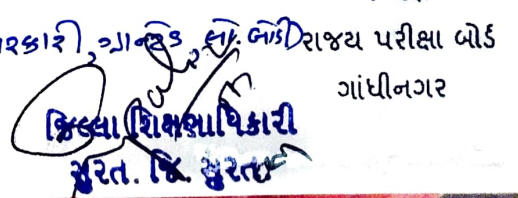 રકારી, ગ્રાન્ટેડ, લો. બોર્ડ) રાજય પરીક્ષા બોર્ડ
ગાંધીનગર
જિલ્લા શિક્ષણાધિકારી
સુરત. જિ. સુરત